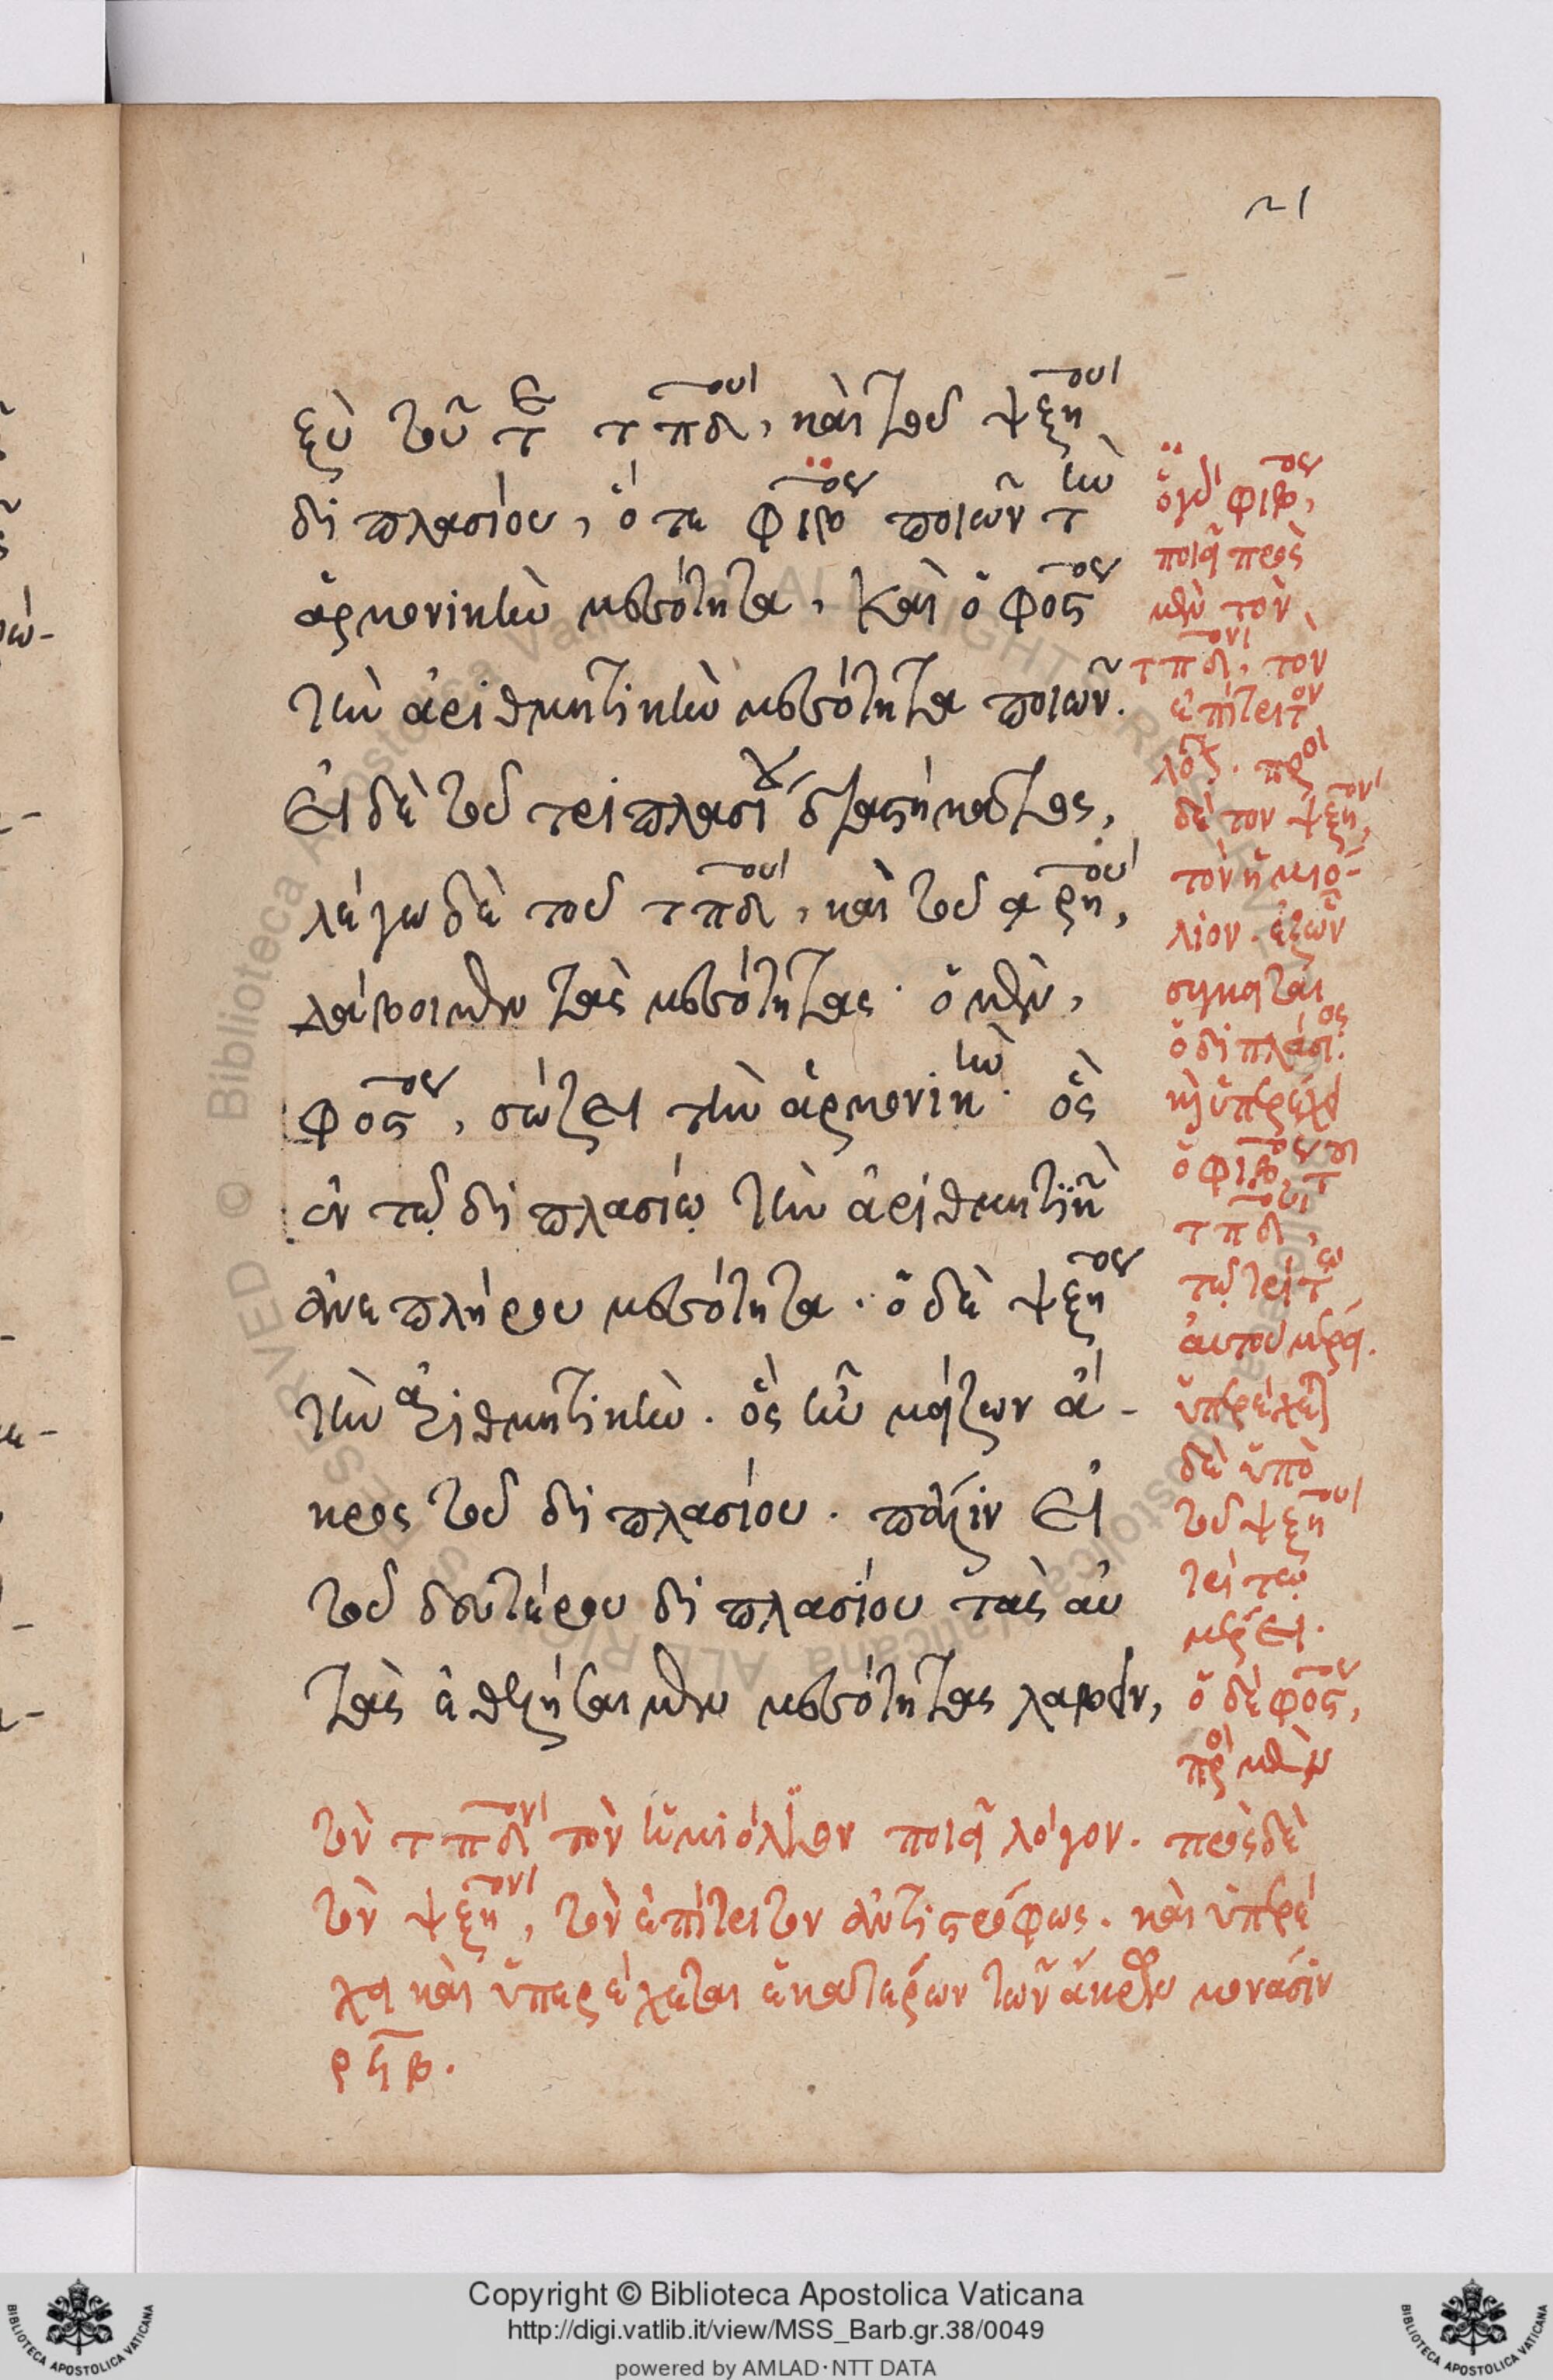 21
ξὺ τοῦ τε τπδου, καὶ τοῦ ψξηου
διπλασίου, ὅ τε φιβος ποιῶν τὴν
ἁρμονικὴν μεσότητα, καὶ ὁ φοϛος
τὴν ἀριθμητικὴν μεσότητα ποιῶν.
εἰ δὲ τοῦ τριπλασίου διαστήματος,
λέγω δὲ τοῦ τπδου, καὶ τοῦ αρηου,
λάβοιμεν τὰς μεσότητας. ὁ μὲν,
φοϛος, σώζει τὴν ἁρμονικὴν. ὃς
ἐν τῷ διπλασίῳ τὴν ἀριθμητικὴν
ἀνεπλήρου μεσότητα. ὁ δὲ ψξηος
τὴν ἀριθμητικὴν. ὃς ἦν μείζων ἄ-
κρος τοῦ διπλασίου. πάλιν εἰ
τοῦ δευτέρου διπλασίου τὰς αὐ
τὰς ἐθελήσαιμεν μεσότητας λαβεῖν,
ὁ γὰρ φιβος,
ποιεῖ πρὸς
μὲν τὸν
τπδον, τὸν
ἐπίτριτον
λόγον. πρὸς
δὲ τὸν ψξηον,
τὸν ἡμιό-
λιον. ἐξ ὧν
ὁ διπλάσιος.
καὶ ὑπερέχει
ὁ φιβος, τοῦ
τπδου,
τῷ τρίτῳ
αὐτοῦ μέρει.
ὑπερέχεται
δὲ ὑπὸ
τοῦ ψξηου
τρίτῳ
μέρει.
ὁ δὲ φοϛος,
πρὸς μὲν
τὸν τπδον τὸν ἡμιόλιον ποιεῖ λόγον. πρὸς δὲ
τὸν ψξηον, τὸν ἐπίτριτον ἀντιστρόφως. καὶ ὑπερέ
χει καὶ ὑπερέχεται ἑκατέρων τῶν ἄκρων μονάσιν
ρϟβ.
Copyright © Biblioteca Apostolica Vaticana
http://digi.vatlib.it/view/MSS_Barb.gr.38/0049
powered by AMLAD·NTT DATA
BIBLIOTECA APOSTOLICA VATICANA
BIBLIOTECA APOSTOLICA VATICANA